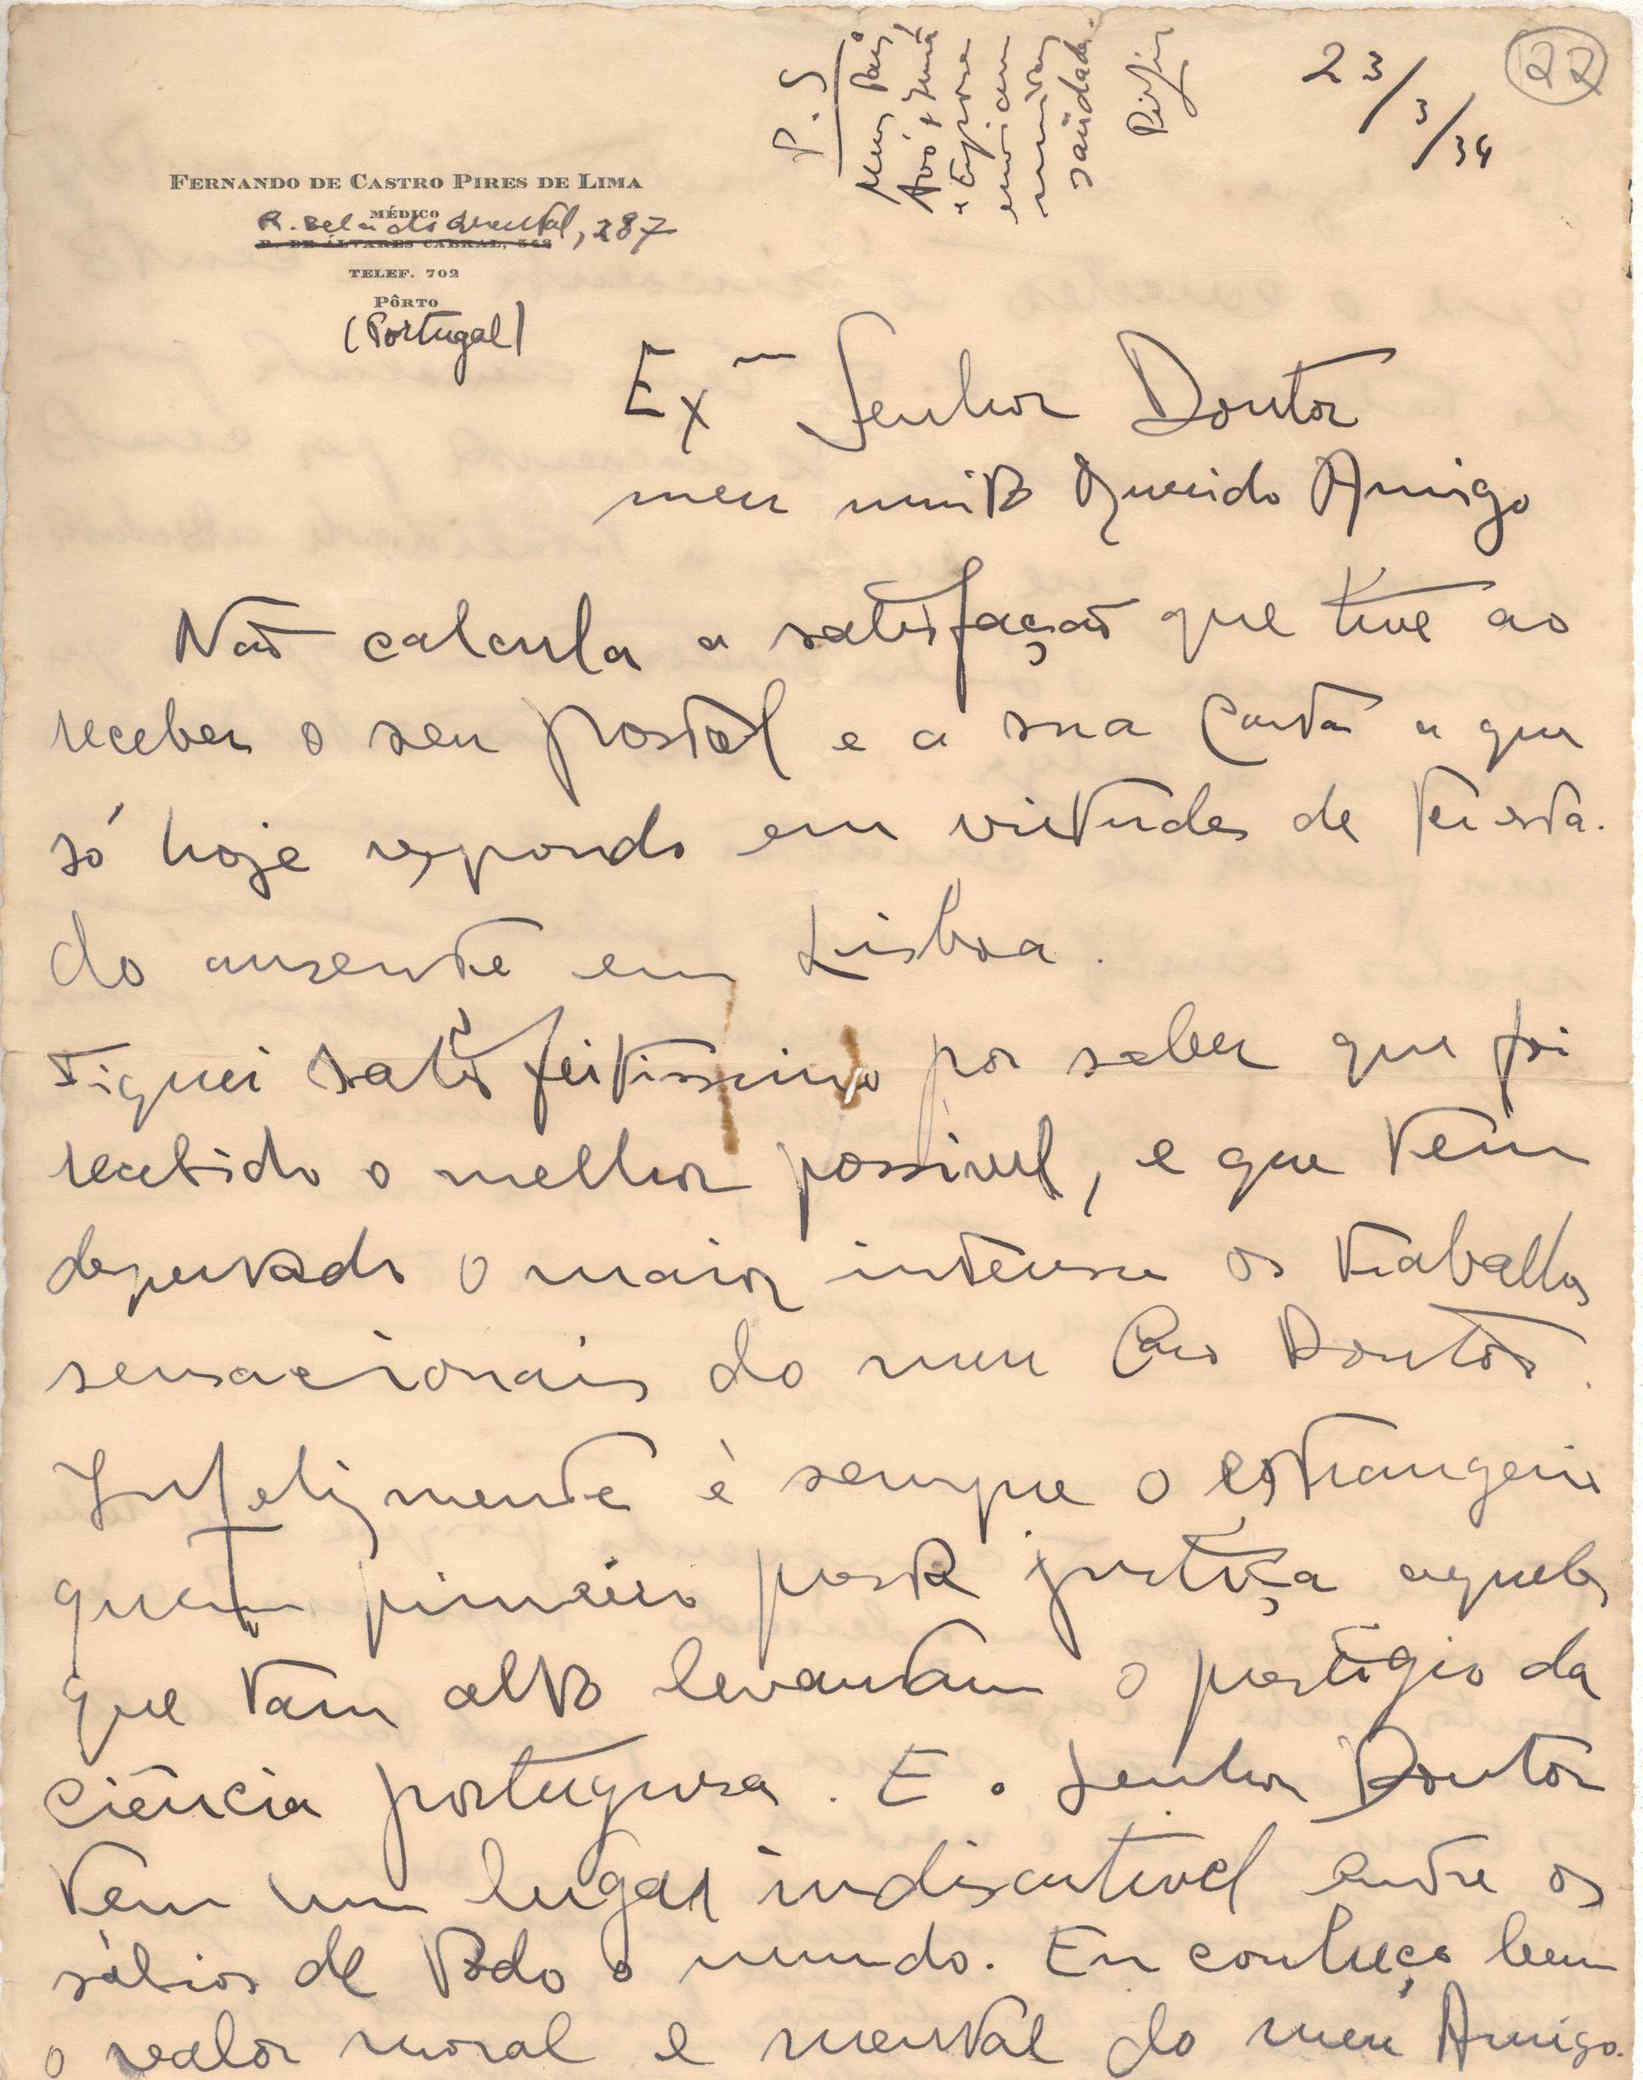 22
23/3/34
P.S
Meus Pais,
Avó, Irmã
e Esposa
enviam
muitas
saüdades.
FERNANDO DE CASTRO PIRES DE LIMA
MÉDICO
R. DE ÁLVARES CABRAL, 348
R. Bela do Oriental, 287
TELEF. 702
PÔRTO
(Portugal)
Exmo Senhor Doutor
meu muito Querido Amigo
Não calcula a satisfação que tive ao
receber o seu postal e a sua carta a que
só hoje respondo em virtude de ter esta-
do ausente em Lisboa.
Fiquei satisfeitissimo por saber que foi
recebido o melhor possivel, e que tem
despertado o maior interesse os trabalhos
sensacionais do meu Caro Doutor.
Infelizmente é sempre o estrangeiro
quem primeiro presta justiça aqueles
que tam alto levantam o prestigio da
Ciência portuguesa. E o Senhor Doutor
tem um lugar indiscutivel entre os
sábios de todo o mundo. Eu conheço bem
o valor moral e mental do meu Amigo.